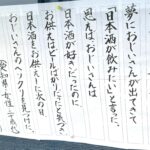 夢におじいさんが出てきて
「日本酒が飲みたい」と言った。
思えばおじいさんは
日本酒が好きだったのに
お供えはビールばかりだったと気づき
日本酒をお供えした次の日
おじいさんのヘソクリを見つけた。
愛知県